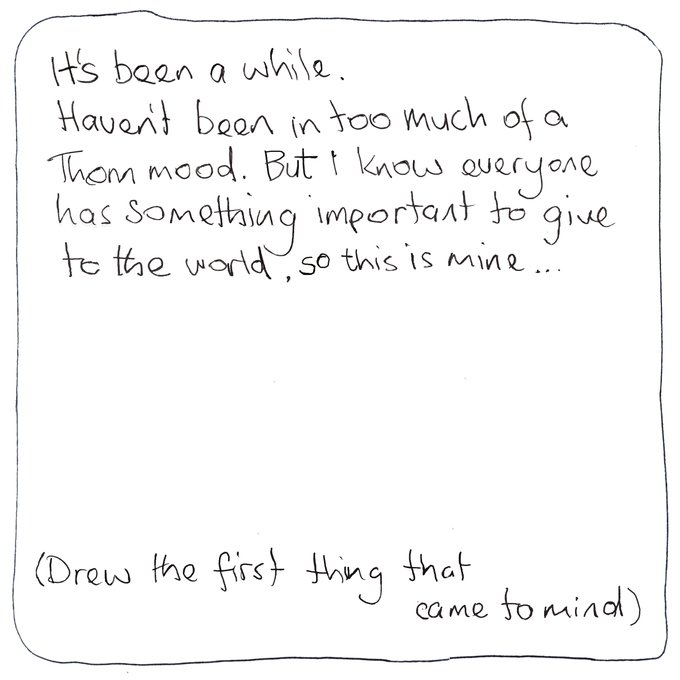 It's been a while.
Haven't been in too much of a
Thom mood. But I know everyone
has something important to give
to the world, so this is mine...
(Drew the first thing that
came to mind)